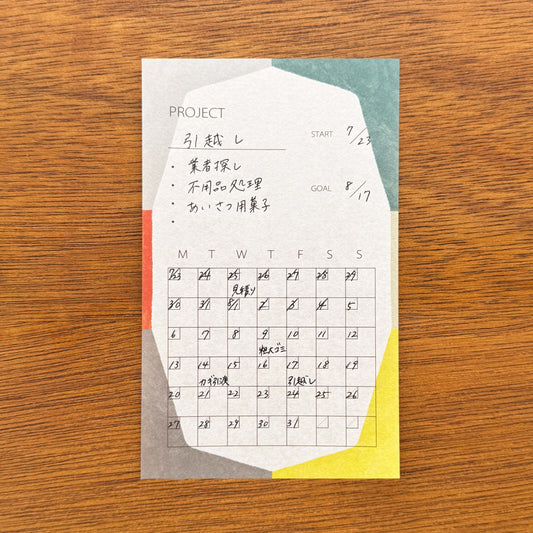 PROJECT
引越し
START 7/23
・業者探し
・不用品処理
GOAL 8/17
・あいさつ用菓子
・
M T W T F S S
7/23 24 25 26 27 28 29
見積り
30 31 8/1 2 3 4 5
6 7 8 9 10 11 12
粗大ゴミ
13 14 15 16 17 18 19
カギ引渡 引越し
20 21 22 23 24 25 26
27 28 29 30 31